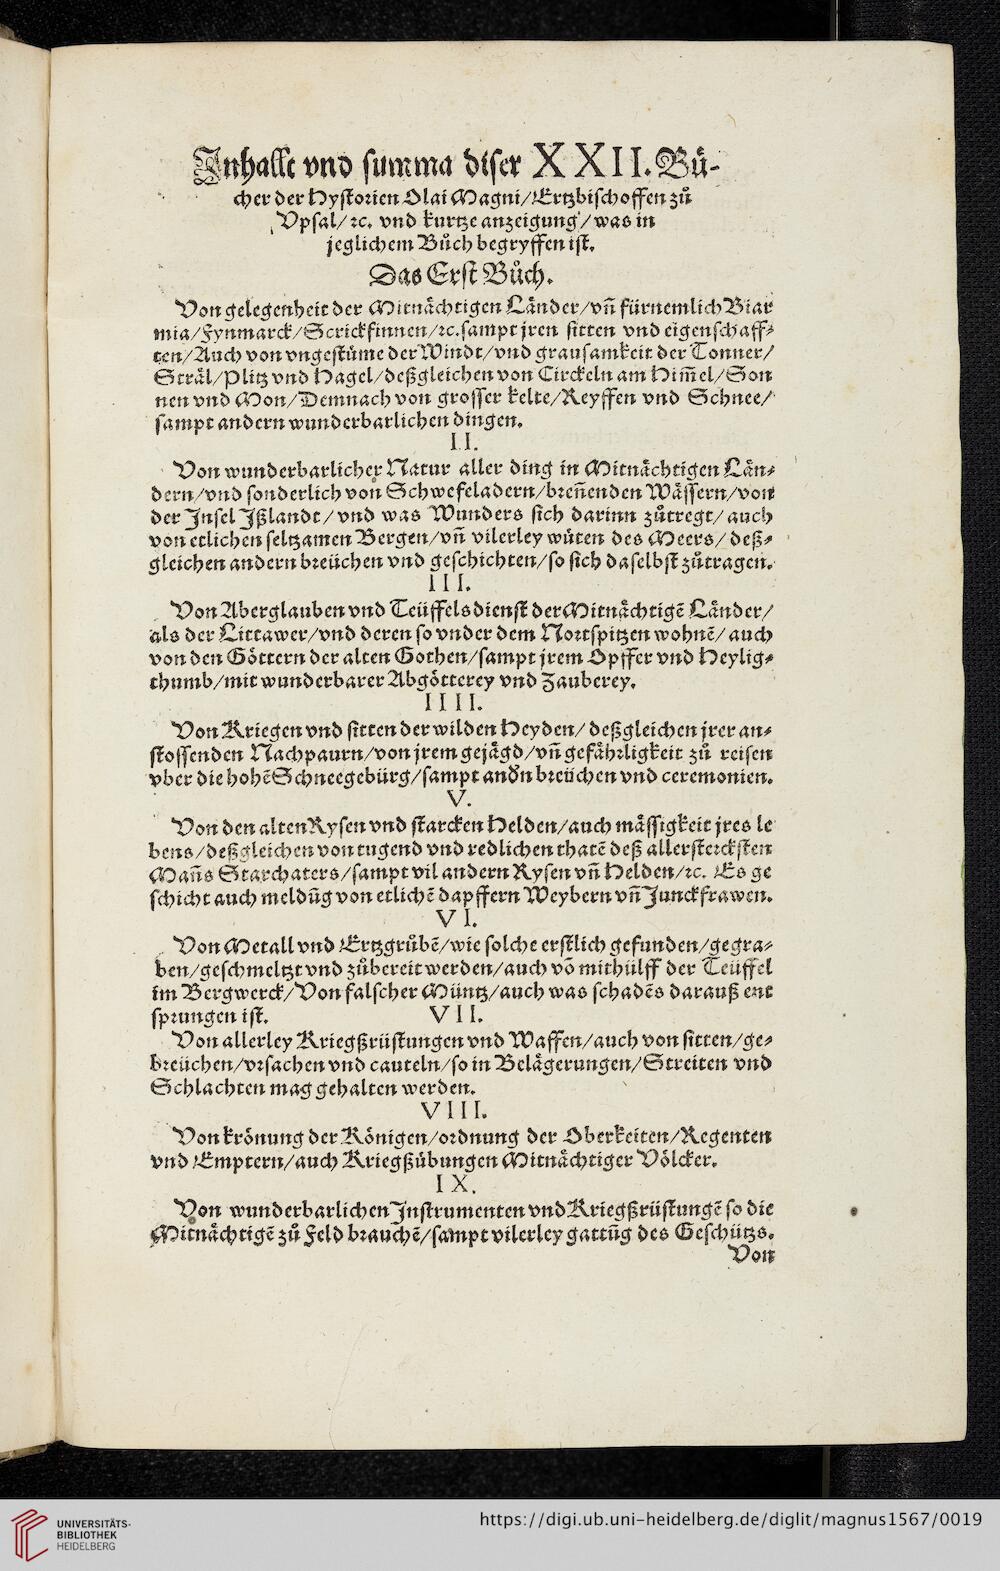 Inhallt vnd summa diser XXII. Bü-
cher der Hystorien Olai Magni/Ertzbischoffen zů
Vpsal/ꝛc. vnd kurtze anzeigung/was in
jeglichem Bůch begryffen ist.
Das Erst Bůch.
Von gelegenheit der Mitnächtigen Länder/vñ fürnemlich Biar
mia/Fynmarck/Scrickfinnen/ꝛc. sampt jren sitten vnd eigenschaff-
ten/Auch von vngestüme der Windt/vnd grausamkeit der Tonner/
Sträl/Plitz vnd Hagel/deßgleichen von Circkeln am Him̃el/Son
nen vnd Mon/Demnach von grosser kelte/Reyffen vnd Schnee/
sampt andern wunderbarlichen dingen.
II.
Von wunderbarlicher Natur aller ding in Mitnächtigen Län-
dern/vnd sonderlich von Schwefeladern/breñenden Wässern/von
der Insel Ißlandt/vnd was Wunders sich darinn zůtregt/auch
von etlichen seltzamen Bergen/vñ vilerley wüten des Meers/deß-
gleichen andern breüchen vnd geschichten/so sich daselbst zůtragen.
III.
Von Aberglauben vnd Teüffelsdienst der Mitnächtigẽ Länder/
als der Littawer/vnd deren so vnder dem Nortspitzen wohnẽ/auch
von den Göttern der alten Gothen/sampt jrem Opffer vnd Heylig-
thumb/mit wunderbarer Abgötterey vnd Zauberey.
IIII.
Von Kriegen vnd sitten der wilden Heyden/deßgleichen jrer an-
stossenden Nachpaurn/von jrem gejägd/vñ gefährligkeit zů reisen
vber die hohẽ Schneegebürg/sampt andn breüchen vnd ceremonien.
V.
Von den alten Rysen vnd starcken Helden/auch mässigkeit jres le
bens/deßgleichen von tugend vnd redlichen thatẽ deß allerstercksten
Mañs Starchaters/sampt vil andern Rysen vñ Helden/ꝛc. Es ge
schicht auch meldũg von etlichẽ dapffern Weybern vñ Junckfrawen.
VI.
Von Metall vnd Ertzgrůbẽ/wie solche erstlich gefunden/gegra-
ben/geschmeltzt vnd zůbereit werden/auch võ mithülff der Teüffel
im Bergwerck/Von falscher Müntz/auch was schadẽs darauß ent
sprungen ist. VII.
Von allerley Kriegßrüstungen vnd Waffen/auch von sitten/ge-
breüchen/vrsachen vnd cauteln/so in Belägerungen/Streiten vnd
Schlachten mag gehalten werden.
VIII.
Von krönung der Königen/ordnung der Oberkeiten/Regenten
vnd Emptern/auch Kriegßübungen Mitnächtiger Völcker.
IX.
Von wunderbarlichen Instrumenten vnd Kriegßrüstungẽ so die
Mitnächtigẽ zů Feld brauchẽ/sampt vilerley gattũg des Geschützs.
Von
UNIVERSITÄTS-
BIBLIOTHEK
HEIDELBERG
https://digi.ub.uni-heidelberg.de/diglit/magnus1567/0019